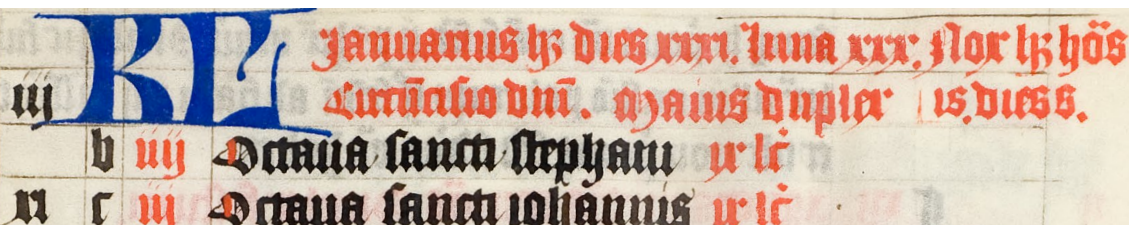 KL Januarius hꝫ dies xxxi. luna xxx. Nox hꝫ hōs
iij Circūcisio dnī. Maius duplex is. dies s.
b iiij Octaua sancti stephani ix lc̄
xi c iii Octaua sancti iohannis ix lc̄